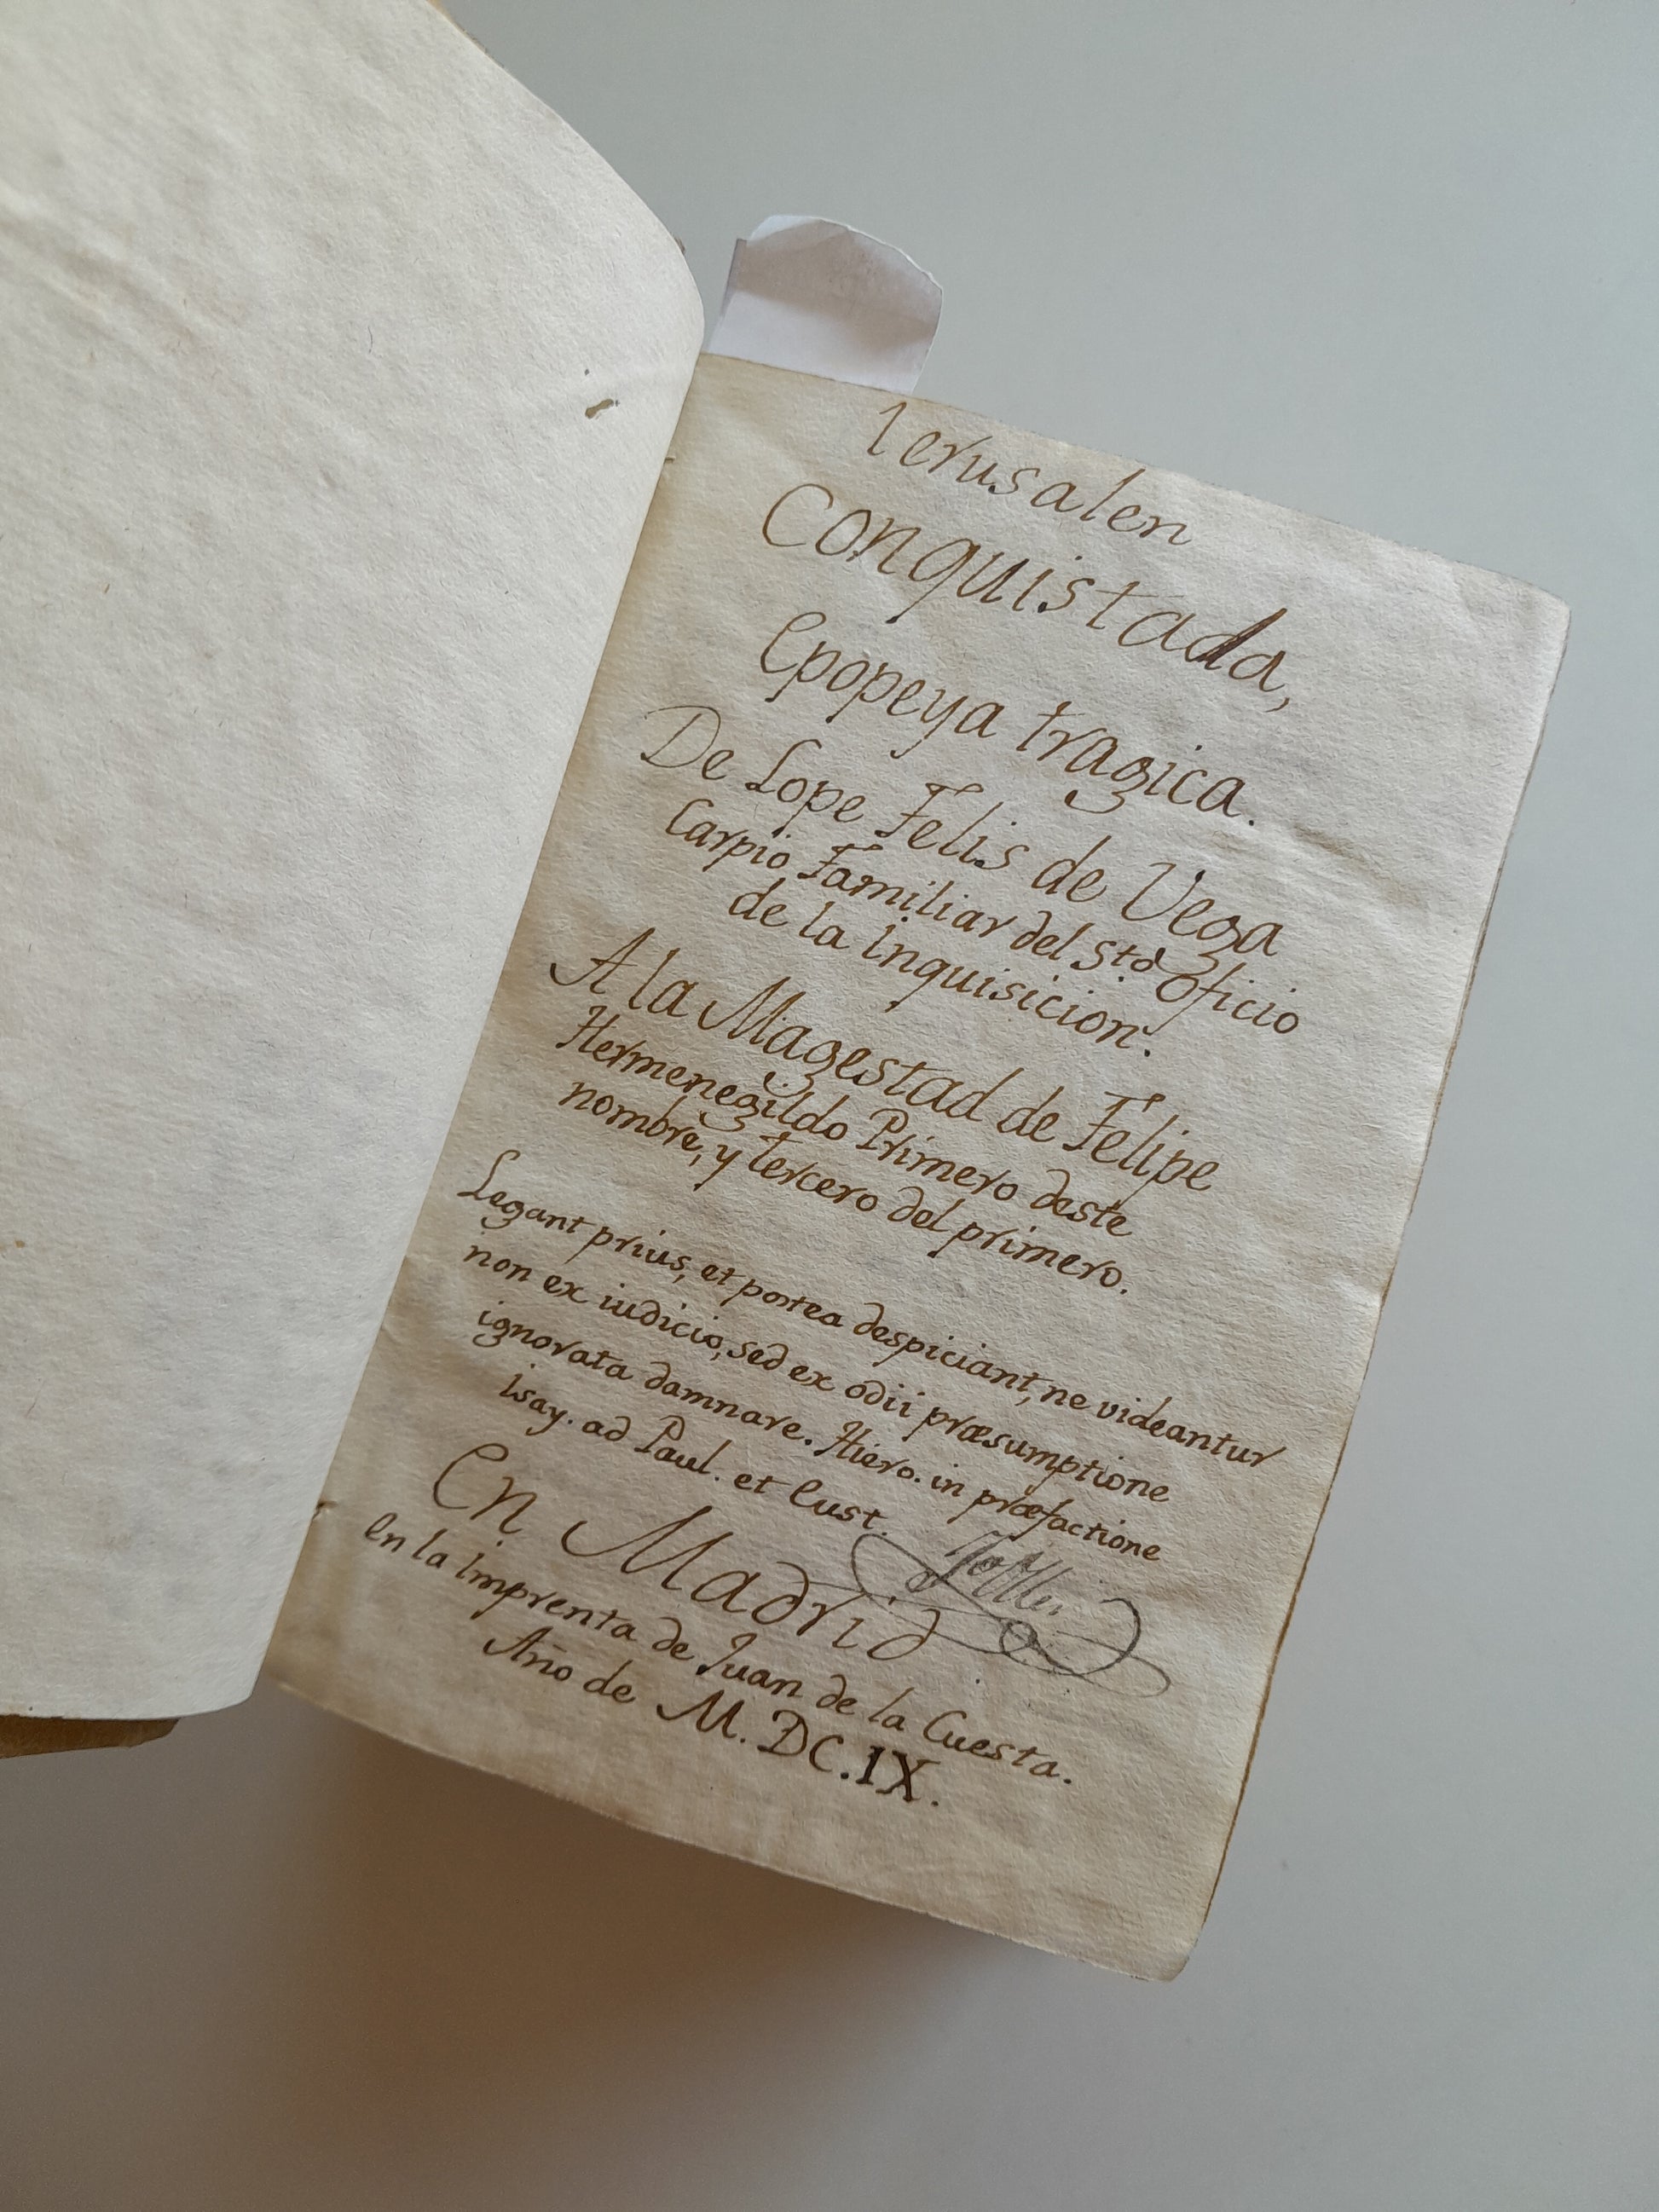 Ierusalen
Conquistada,
Epopeya tragica.
De Lope Felis de Vega
Carpio Familiar del Sto Oficio
de la Inquisicion.
A la Magestad de Felipe
Hermenegildo Primero deste
nombre, y tercero del primero.
Legant prius, et postea despiciant, ne videantur
non ex iudicio, sed ex odii præsumptione
ignorata damnare. Hiero. in præfactione
Isay. ad Paul. et Eust.
En Madrid
En la Imprenta de Juan de la Cuesta.
Año de M.DC.IX.